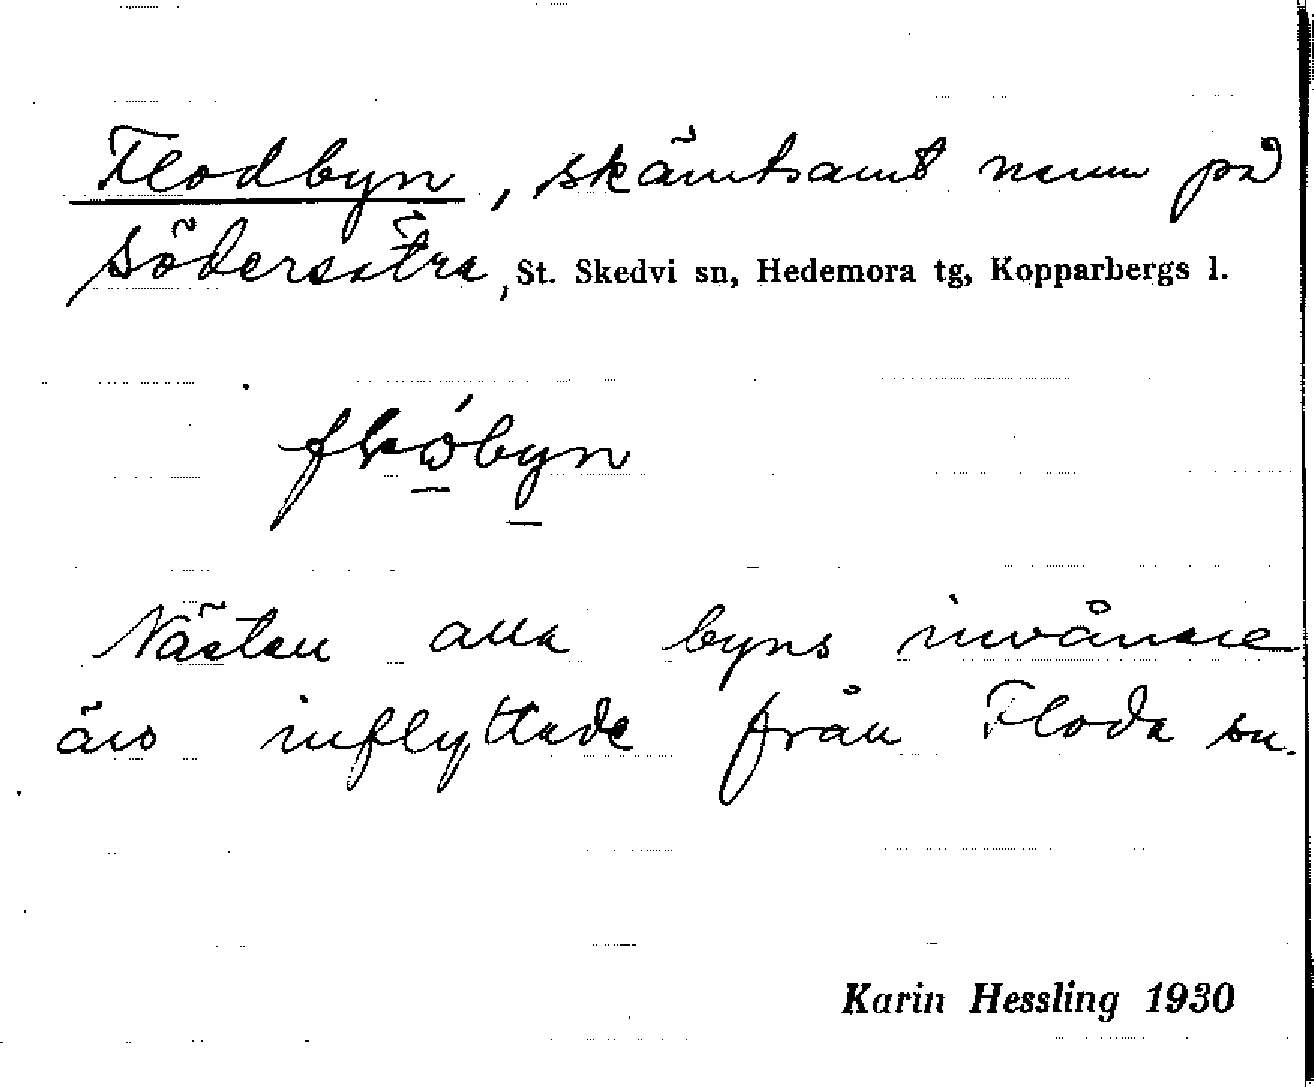 Flodbyn, skämtsamt namn på
Södersätra, St. Skedvi sn, Hedemora tg, Kopparbergs l.
Nästan alla byns invånare
äro inflyttade från Floda sn.
Karin Hessling 1930